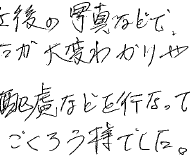 後の写真などで、
が大変わかりや
配慮などを行なって
ごくろう様でした。